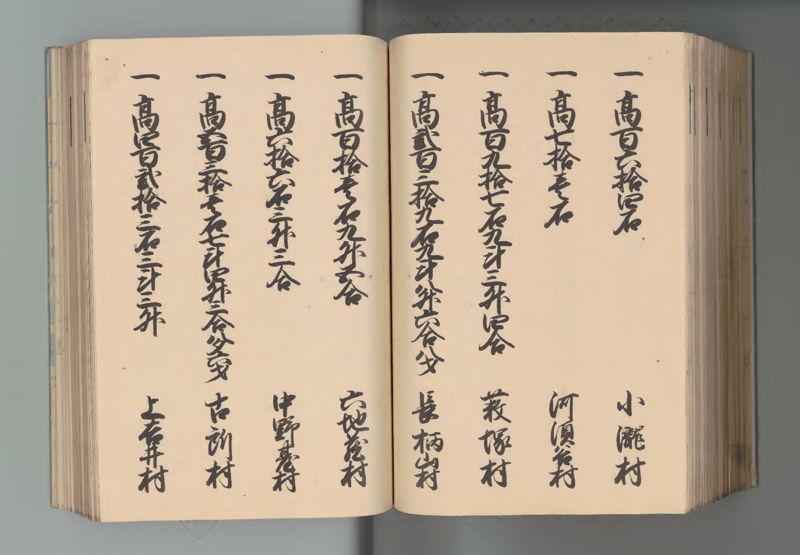 一 高百六拾四石 小瀧村
一 高七拾壱石 河須ヶ谷村
一 高百九拾七石九斗三升四合 萩塚村
一 高弐百三拾九石九斗八升六合八夕 長柄山村
一 高百拾壱石九升四合 六地蔵村
一 高六拾六石三升三合 中野台村
一 高五百三拾壱石七斗四升三合 古所村
一 高四百弐拾三石三斗三升 上吉井村